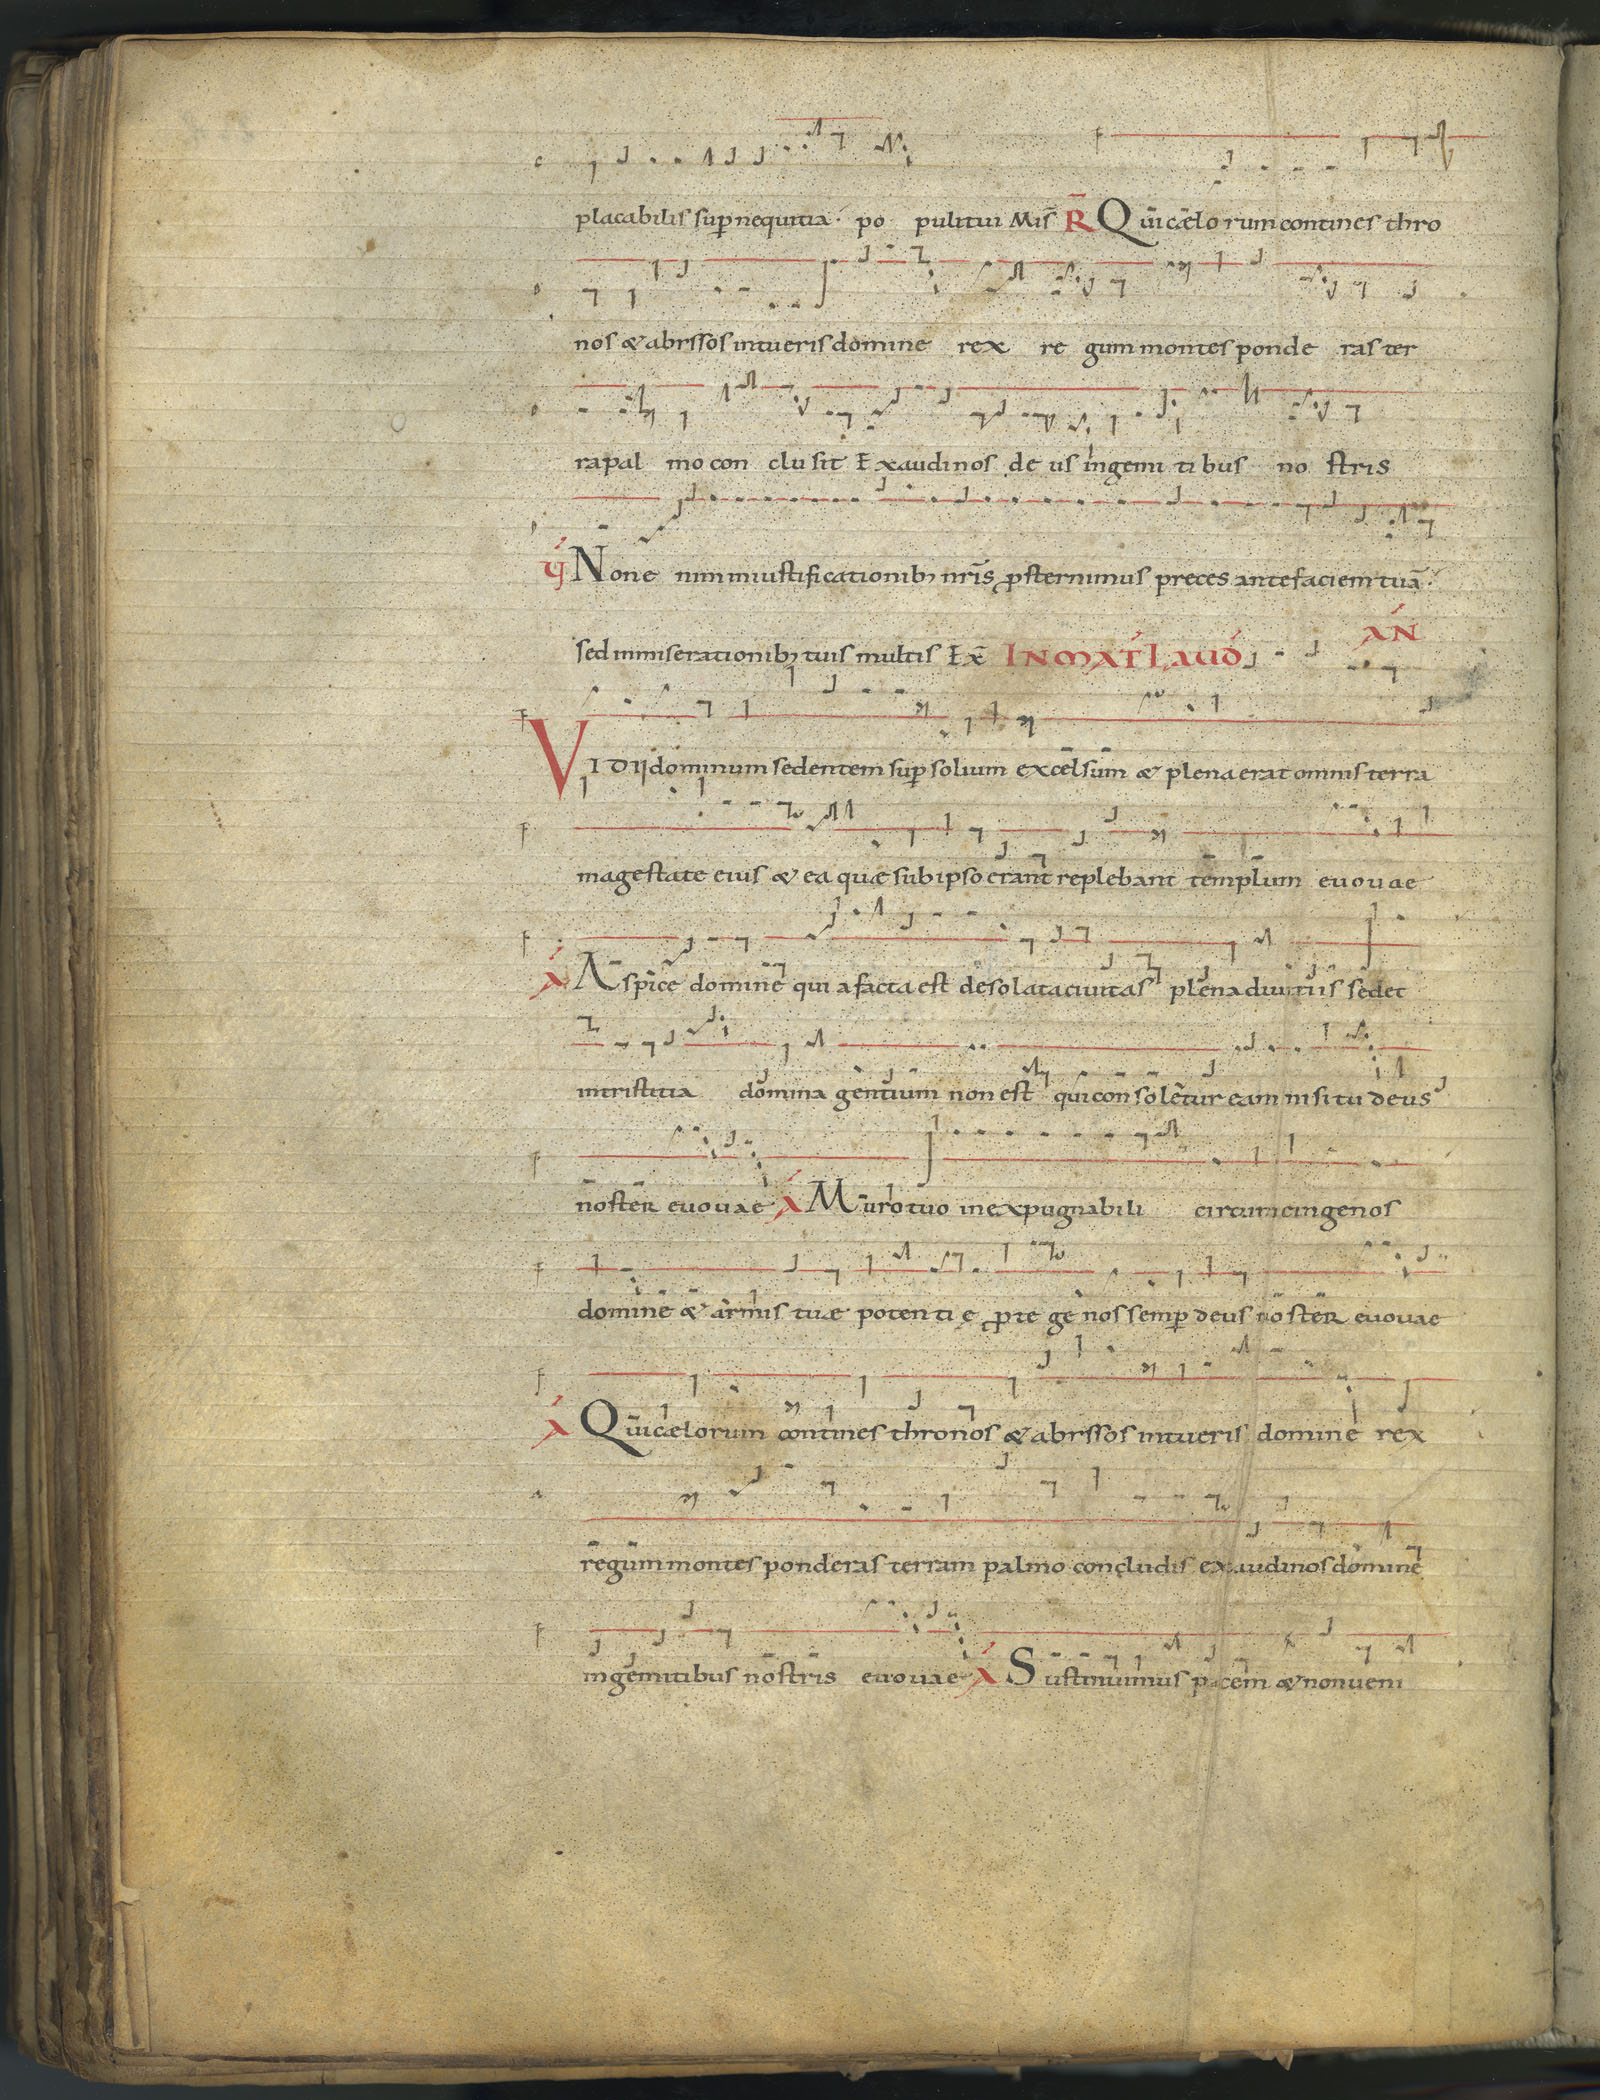 placabilis sup̄ nequitia · po pulitui Mis̄ R̄ Qui cælorum contines thro
nos & abyssos intueris domine rex regum montes ponde ras ter
ra pal mo con clu sit Exaudi nos de us in gemi ti bus no stris
℣ Non e nim in iustificationib; nr̄is ꝓsternimus preces ante faciem tuā ·
sed in miserationib; tuis multis Ex̄ IN MAT LAUD AN
VIDII dominum sedentem sup̄ solium excelsum & plena erat omnis terra
magestate eius & ea quæ sub ipso erant replebant templum euouae
A Aspice domine quia facta est desolata ciuitas plena diuitiis sedet
in tristitia domina gentium non est qui consoletur eam nisi tu deus
noster euouae A Muro tuo inexpugnabili circumcinge nos
domine & armis tuæ potentię ꝓtege nos semp̄ deus noster euouae
A Qui cælorum contines thronos & abyssos intueris domine rex
regum montes ponderas terram palmo concludis exaudi nos domine
in gemitibus nostris euouae A Sustinuimus pacem & non ueni